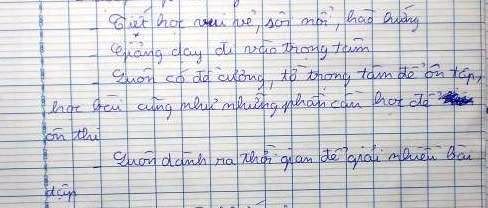 - Tiết học vui vẻ, sôi nổi, hào hứng
- Giảng dạy đi vào trọng tâm
- Luôn có đề cương, tờ trọng tâm để ôn tập,
học bài cũng như những phần cần học để
ôn thi
- Luôn dành ra thời gian để giải nhiều bài
tập